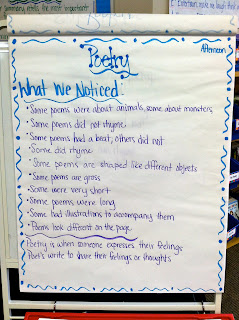 Afternoon
Poetry
What We Noticed:
• Some poems were about animals, some about monsters
• Some poems did not rhyme
• Some poems had a beat, others did not
• Some did rhyme
• Some poems are shaped like different objects
• Some poems are gross
• Some were very short
• Some poems were long
• Some had illustrations to accompany them
• Poems look different on the page
Poetry is when someone expresses their feelings
Poets write to share their feelings or thoughts